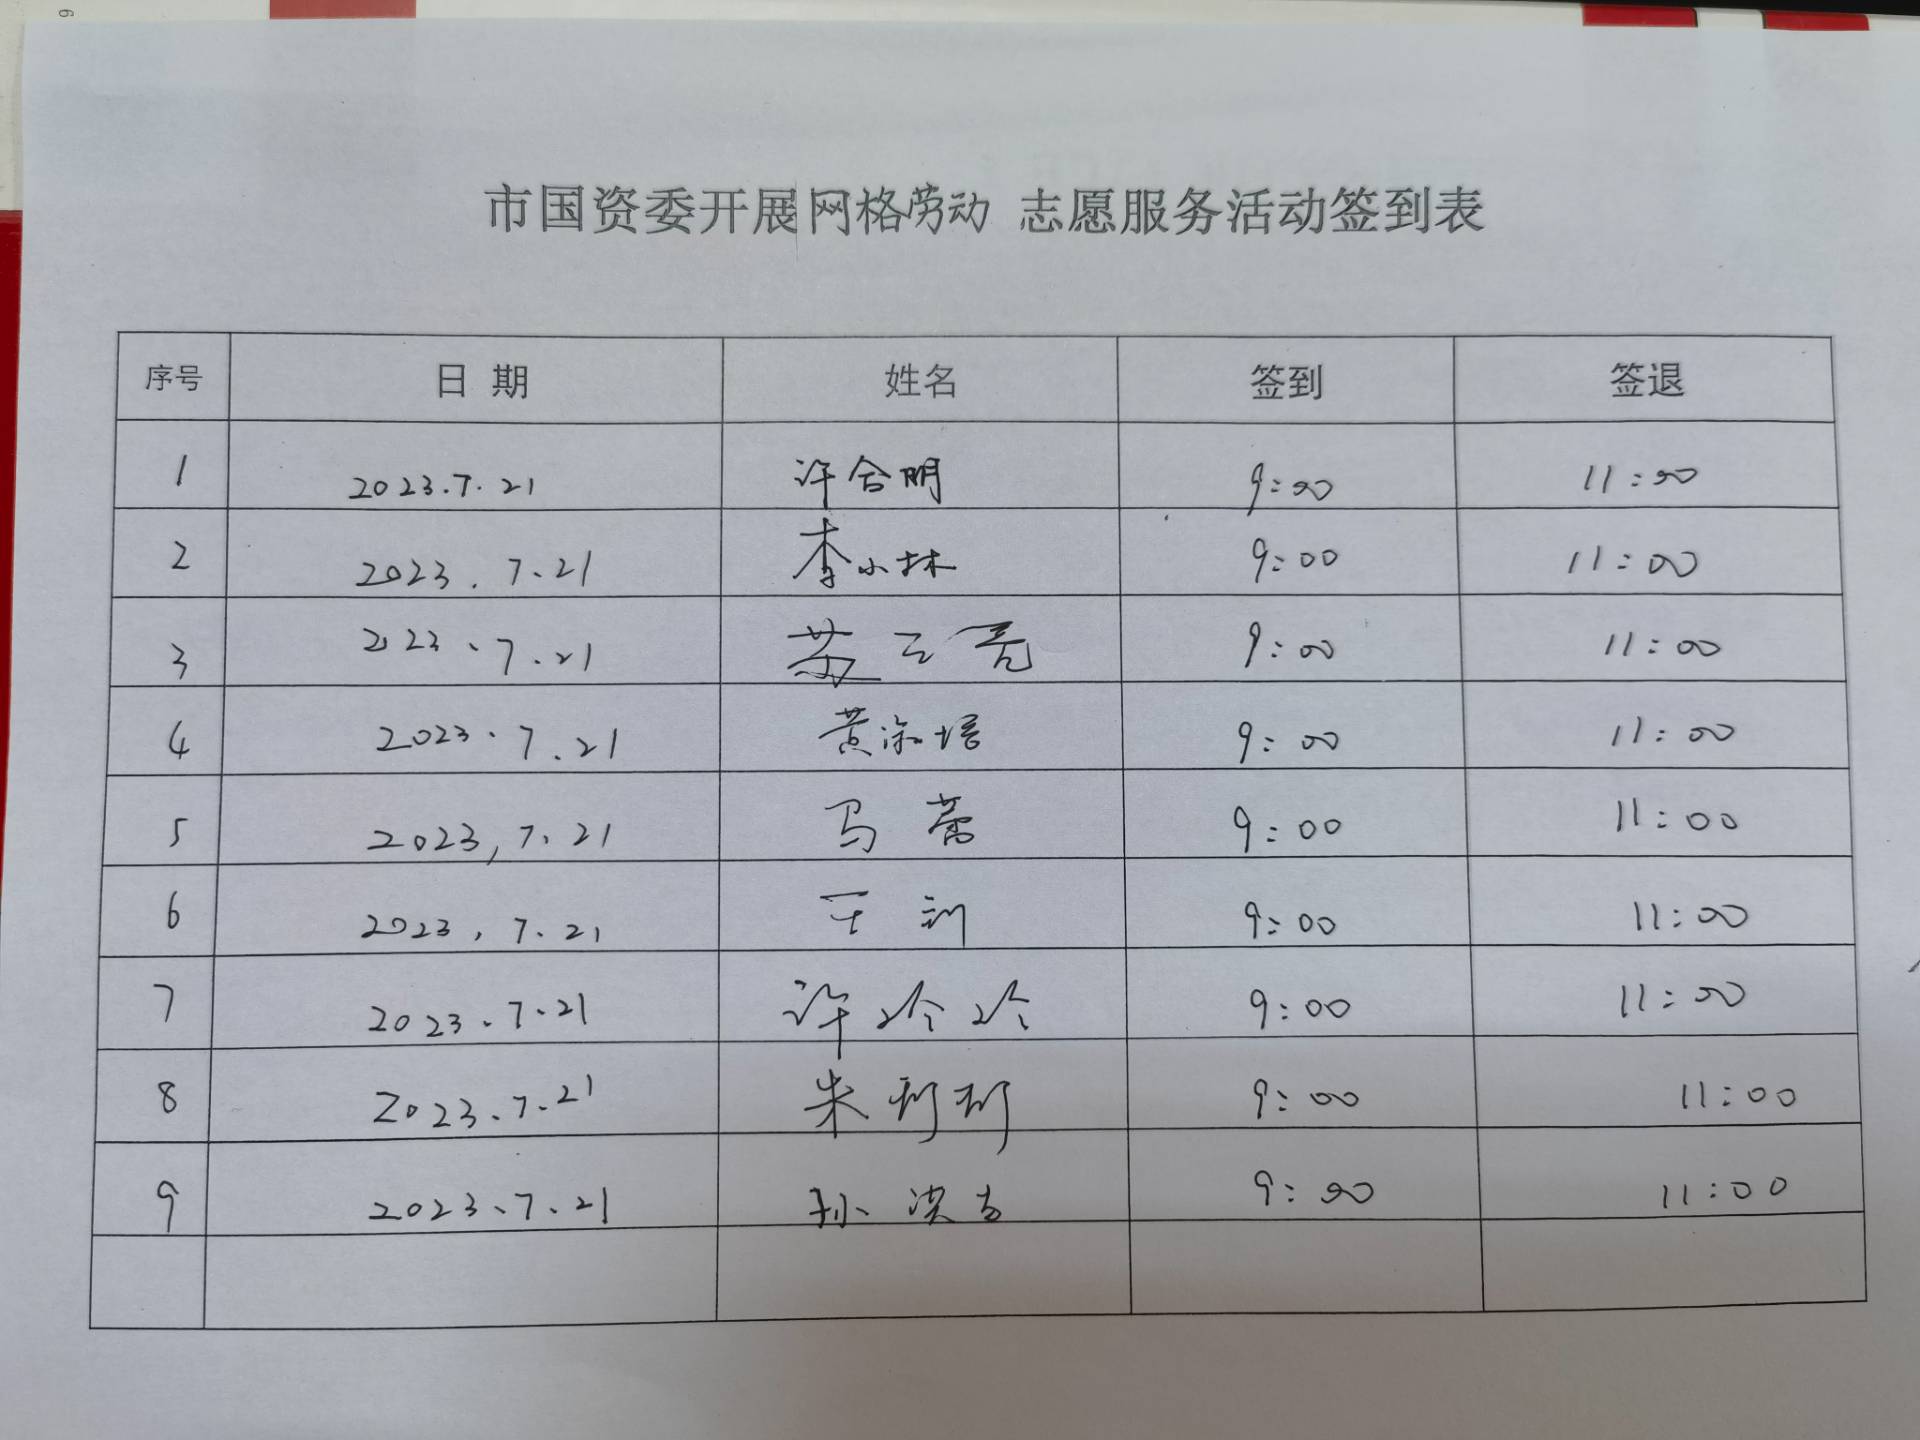 市国资委开展网格劳动 志愿服务活动签到表
序号 日期 姓名 签到 签退
1 2023.7.21 许合明 9:00 11:00
2 2023.7.21 李小林 9:00 11:00
3 2023.7.21 苏云亮 9:00 11:00
4 2023.7.21 黄淑培 9:00 11:00
5 2023,7.21 马蕾 9:00 11:00
6 2023.7.21 王训 9:00 11:00
7 2023.7.21 许玲玲 9:00 11:00
8 2023.7.21 朱莉莉 9:00 11:00
9 2023.7.21 孙洪吉 9:00 11:00